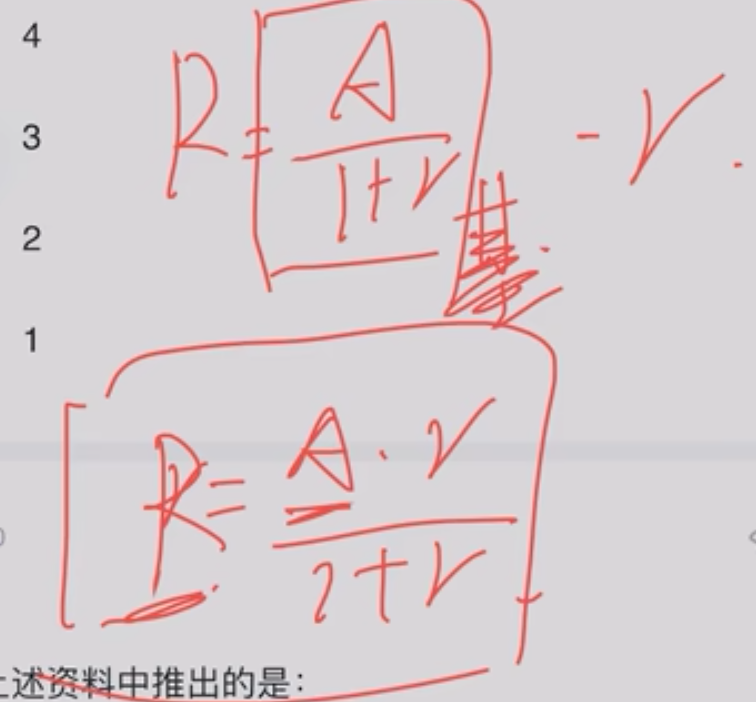 4
3
2
1
R = A / (1+r) · r.
R = A · r / (1+r)
上述资料中推出的是：